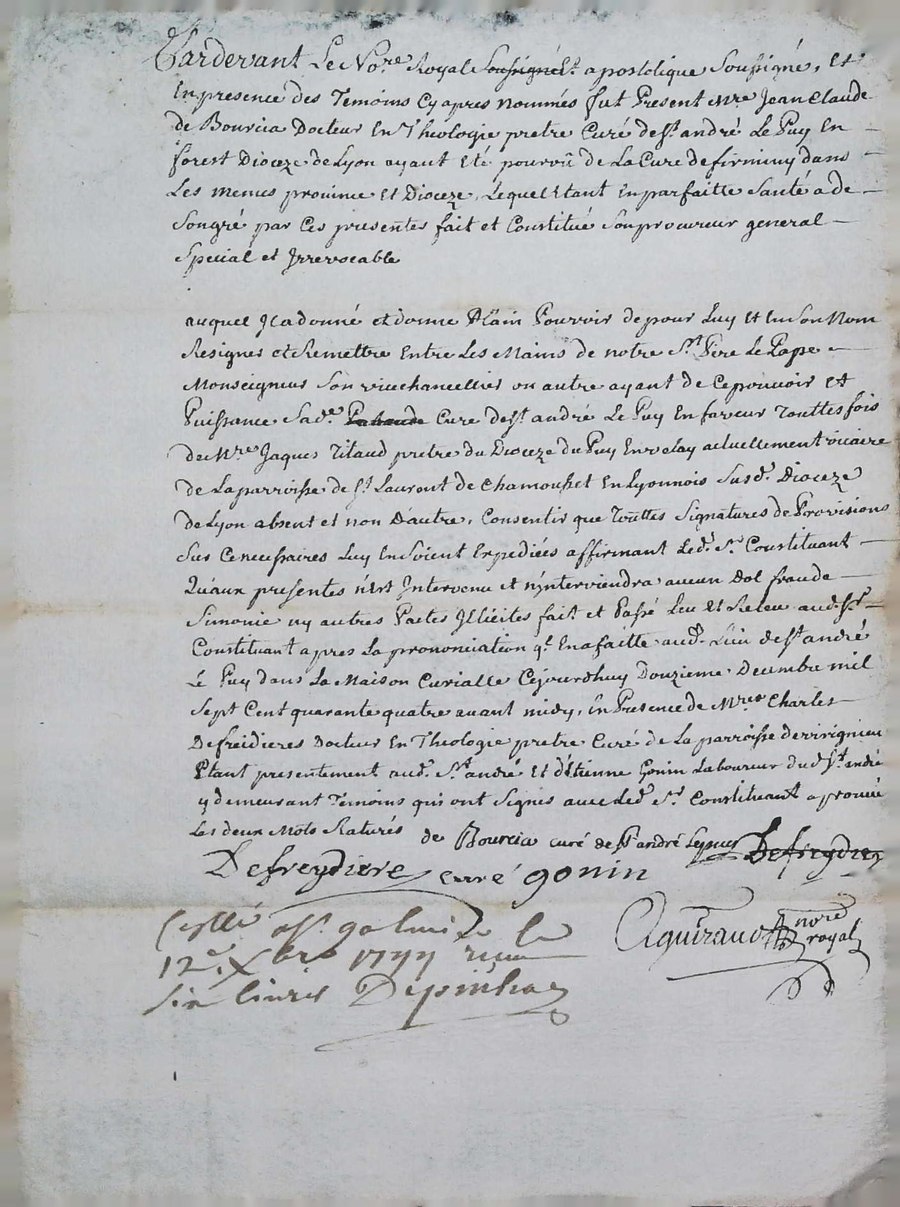 Pardevant Le No.re Royal Soussigné Et apostolique Soussigné, Et
En presence des Temoins Cy apres nommés fut Present Mre Jean Claude
de Bourcia Docteur En Theologie pretre Curé de St. andré Le Puy En
forest Dioceze de Lyon ayant Eté pourvû de La Cure de firminy dans
Les memes province Et Dioceze, Lequel Etant En parfaitte Santé a de
Son gré par Ces presentes fait et Constitué Son procureur general
Special et Irrevocable
auquel Il a donné et donne Plain Pouvoir de pour Luy Et En Son Nom
Resigner et Remettre Entre Les Mains de notre St. Pere Le Pape
Monseigneur Son vicechancellier ou autre ayant de Ce pouvoir et
Puissance Sad.e Cure de St. andré Le Puy En faveur Touttes fois
de Mre Jaques Titaud pretre du Dioceze du Puy En velay actuellement vicaire
de La parroisse de St. Laurent de Chamousset En Lyonnois Susd. Dioceze
de Lyon absent et non D'autre, Consentir que Touttes Signatures de Provisions
Sur Ce necessaires Luy En Soient Expediées affirmant Led. Sr. Constituant
Qu'aux presentes n'est Intervenu et n'y interviendra aucun dol fraude
Simonie ny autres Pactes Illicites fait et Passé Leu Et Releu aud. Sr.
Constituant apres La prononciation q.l En a faitte aud. Lieu de St. andré
Le Puy dans La Maison Curialle Cejourdhuy Douzieme Decembre mil
Sept Cent quarante quatre avant midy, En Presence de Mres Charles
Defreidieres Docteur En Theologie pretre Curé de La parroisse de virignieu
Etant presentement aud. St. andré Et d'Etienne Gonin Laboureur dud. St. andré
y demeurant Temoins qui ont Signés avec Led. Sr. Constituant aprouvé
Les deux Mots Raturés de Bourcia curé de St. andré Le puy Defreydier
Defreydiere curé gonin
Aguiraud nore royal
Con.llé a St. galmier le
12e. Xbre 1744 reçu
six livres Depinhac